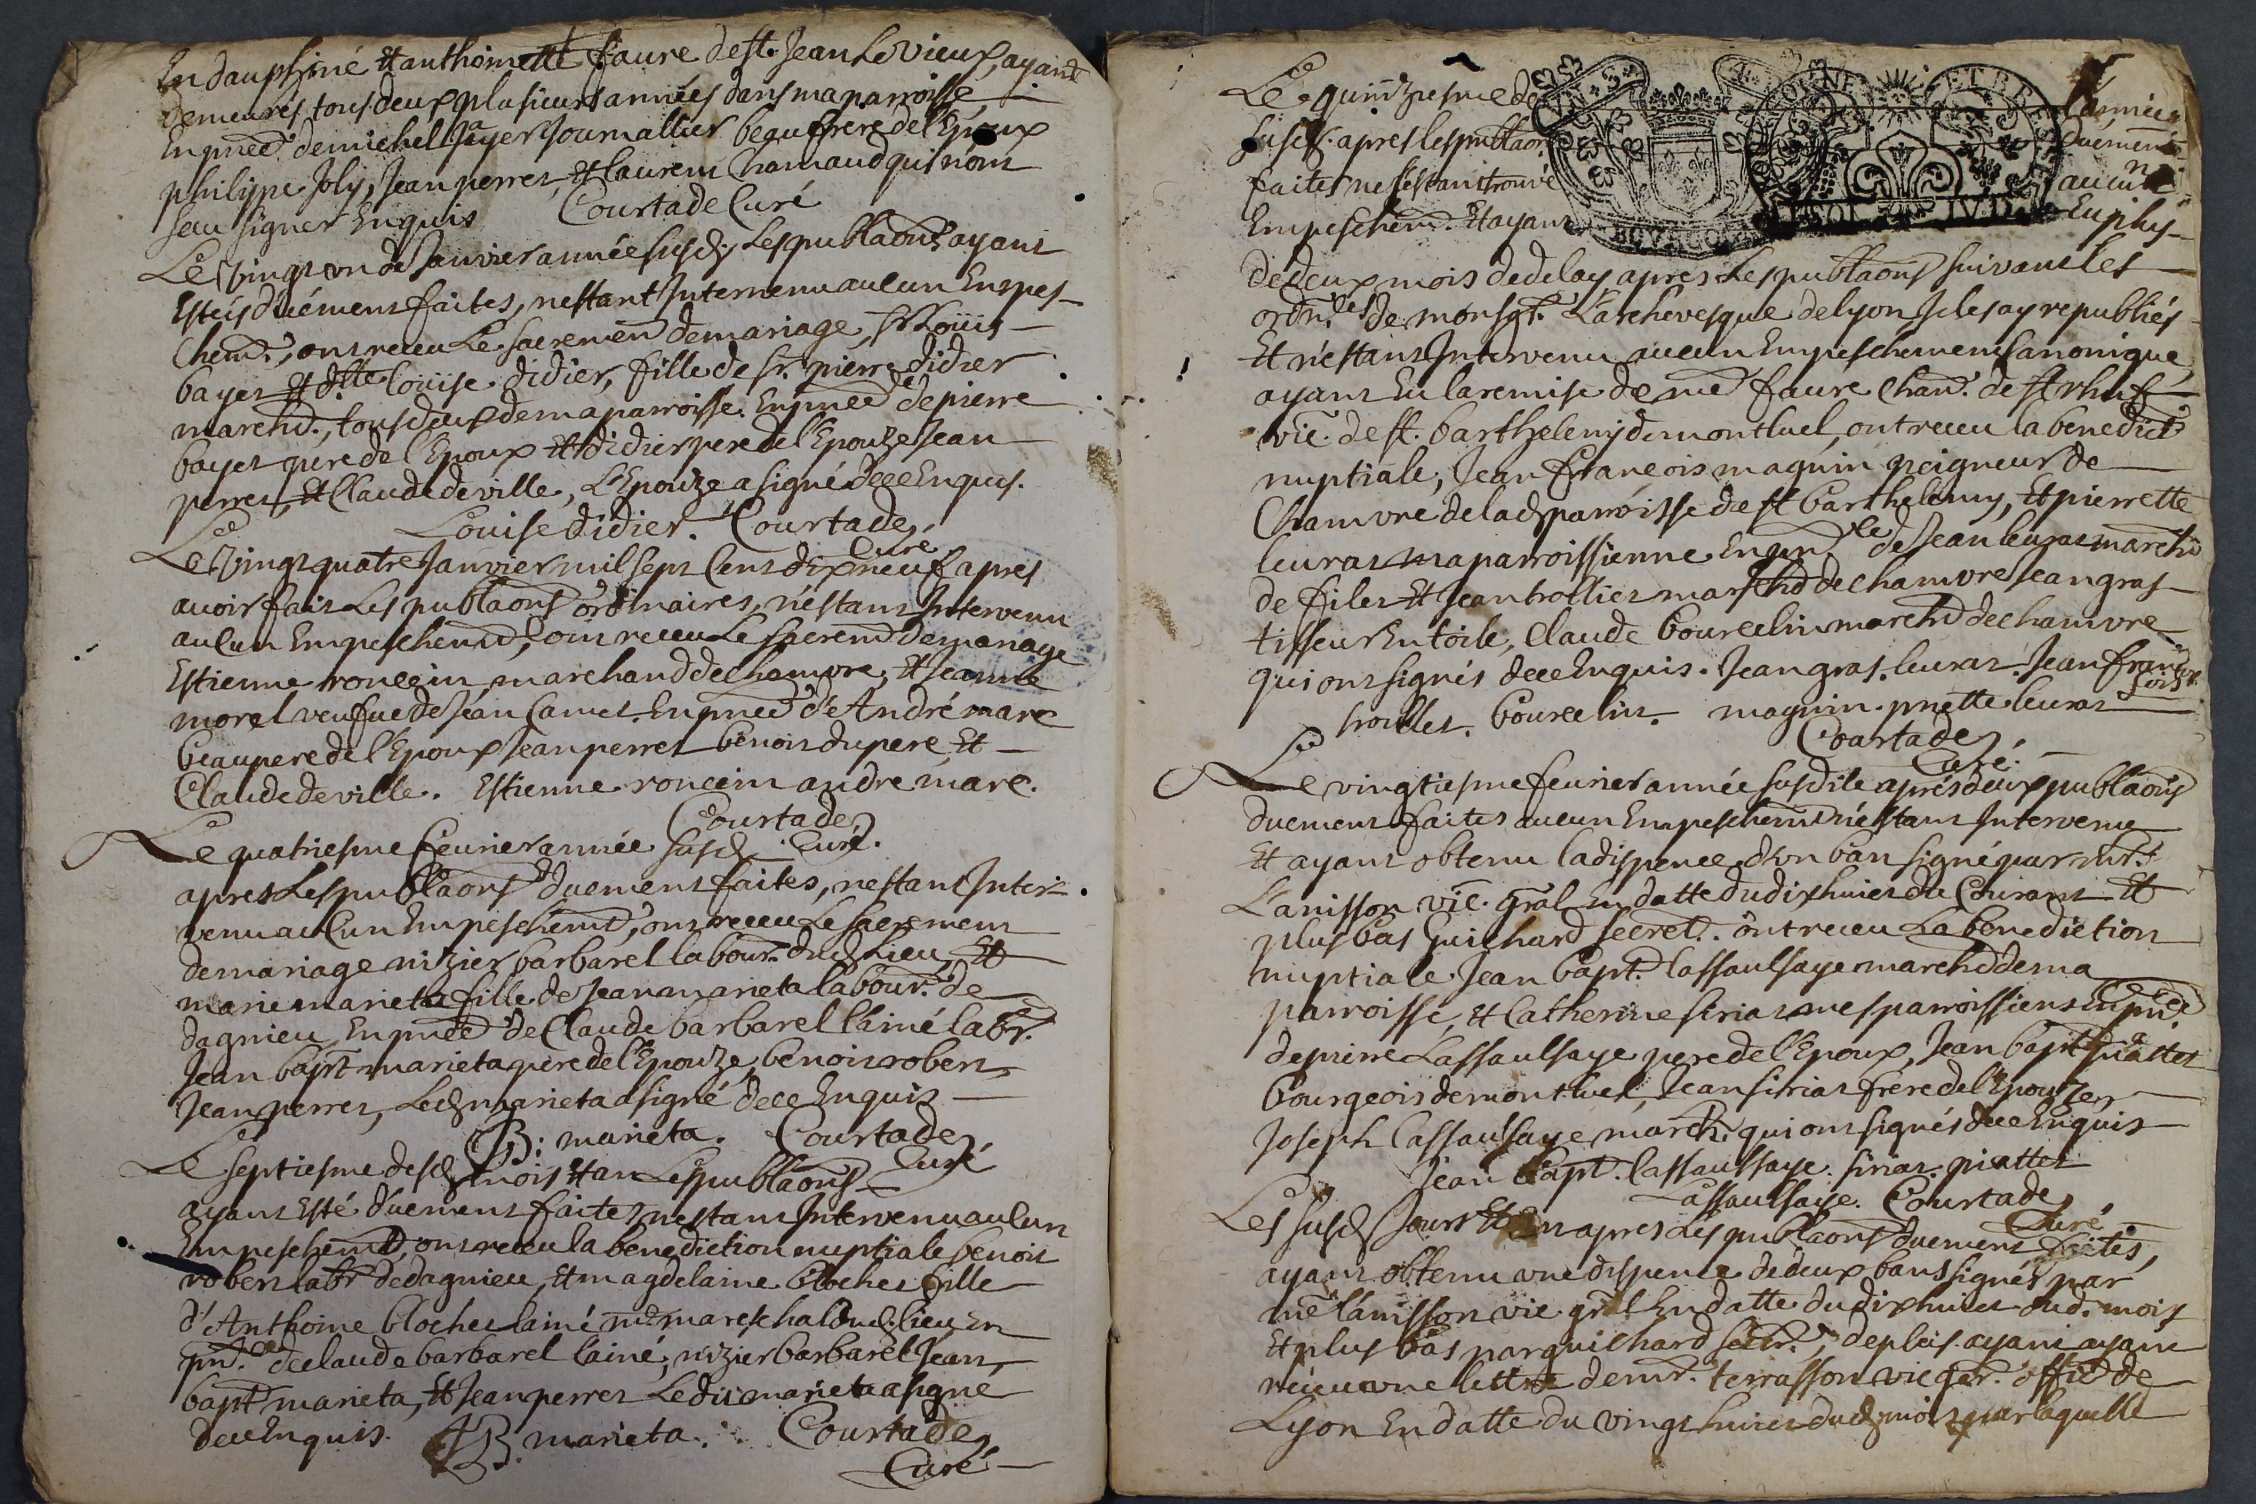 En dauphiné Et anthoinette faure de st. Jean Le Vieux, ayant
demeurés tous deux plusieurs années dans ma parroisse
En pñce de michel Jayer Journallier beaufrere de l'Epoux
philippe Joly, Jean perret, Et laurent Chamaud qui n'ont
sceu signer Enquis Courtade Curé
Le vingt un de Janvier année susd. Les publãons ayant
Estés düement faites, n'estant Intervenu aucun Empes-
chem̃t, ont receu Le sacrement de mariage, sr. Loüis
bayet Et dlle loüise didier, fille de sr. pierre didier
marchd., tous deux de ma parroisse. En pñce de pierre
bayet pere de l'Epoux Et didier pere de l'Epouze Jean
perret, Et Claude deville, L'Epouze a signé de ce Enquis.
Louise didier. Courtade
Curé
Le vingt quatre Janvier mil sept Cent dix neuf apres
avoir fait Les publãons ordinaires, n'estant Intervenu
aucun Empeschem̃t, ont receu Le sacrem̃t de mariage
Estienne roncein marchand de chamvre, Et Jeanne
morel veufve de Jean Camet. En pñce d'André marc
beaupere de l'Epoux Jean perret benoit dupere, Et
Claude deville. Estienne roncein andre marc.
Courtade
Curé.
Le quatriesme fevrier année susd.
apres Les publãons duement faites, n'estant Inter-
venu aucun Empeschem̃t, ont receu Le sacrement
de mariage nizier barbarel labour. dud. Lieu, Et
marie marieta fille de Jean marieta labour. de
dagnieu, En pñce de Claude barbarel l'ainé labr.
Jean bapt. marieta pere de l'Epouze, benoit robert,
Jean perret, Led. marieta a signé de ce Enquis
JB. marieta. Courtade
Curé
Le septiesme desd. mois Et an Les publãons
ayant Esté düement faites n'estant Intervenu aucun
Empeschem̃t, ont receu la benediction nuptiale benoit
robert labr. de dagnieu, Et magdelaine blochet fille
d'Anthoine blochet lainé me. mareschal dud. lieu En
pñce de claude barbarel lainé, nizier barbarel Jean
bapt. marieta, Et Jean perret Le dit marieta a signé
de ce Enquis. JB. marieta. Courtade
Curé
Le quinziesme de l'année
susd. apres les publãons duement
faites ne s'estant trouvé aucun
Empeschem̃t. Et ayant Eu plus
de deux mois de delay apres Les publãons suivant Les
ordñces de monsgr. L'archevesque de lyon Je les ay republiés
Et n'estant Intervenu aucun Empeschement Canonique,
ayant Eu la remise de me. faure Chan. de st ruf
vic. de st. barthelemy de montluel, ont receu la benedict.
nuptiale, Jean françois magnin peigneur de
Chamvre de lad. parroisse de st barthelemy, Et pierrette
leuras ma parroissienne En pñce de Jean leuras marchd
de filet Et Jean trollier marchd de chamvre Jean gras
tisseur En toile, Claude bourcelin marchd de chamvre
qui ont signés de ce Enquis. Jean gras. leuras. Jean fran
çois
trollier. bourcelin. magnin. prette leuras
Courtade
Curé.
Le vingtiesme fevrier année susdite après deux publãons
duement faites aucun Empeschem̃t n'estant Intervenu
Et ayant obtenu la dispence d'un ban signé par mr.
L'anisson vic. gñal En datte du dixhuict du Courant Et
plus bas Guichard secret. ont receu La benediction
nuptiale Jean bapt. lassaulsaye marchd de ma
parroisse, Et Catherine siriat mes parroissiens En pñce
de pierre Lassaulsaye pere de l'Epoux, Jean bapt. piattet
bourgeois de montluel, Jean siriat frere de l'Epouze,
Joseph lassaulsaye march. qui ont signés de ce Enquis
Jean bapt. lassaulsaye. siriat. piattet
Lassaulsaye. Courtade
Curé
Les susd. Jour Et an apres Les publãons duement faites,
ayant obtenu une dispence de deux bans signés par
me l'anisson vic grãl En datte du dixhuict dud. mois
Et plus bas par guichard secr., de plus ayant ayant
receu une lettre de mr. terrasson vic ger. offic. de
Lyon En datte du vingt huict dud. mois par laquelle